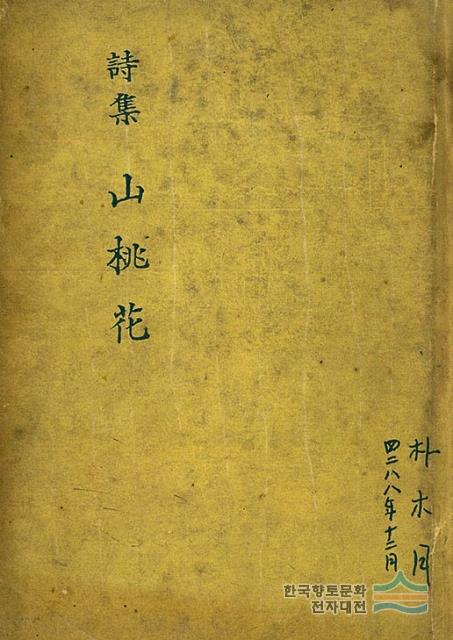 詩集 山桃花
朴木月
四二八八年十二月
한국향토문화
전자대전